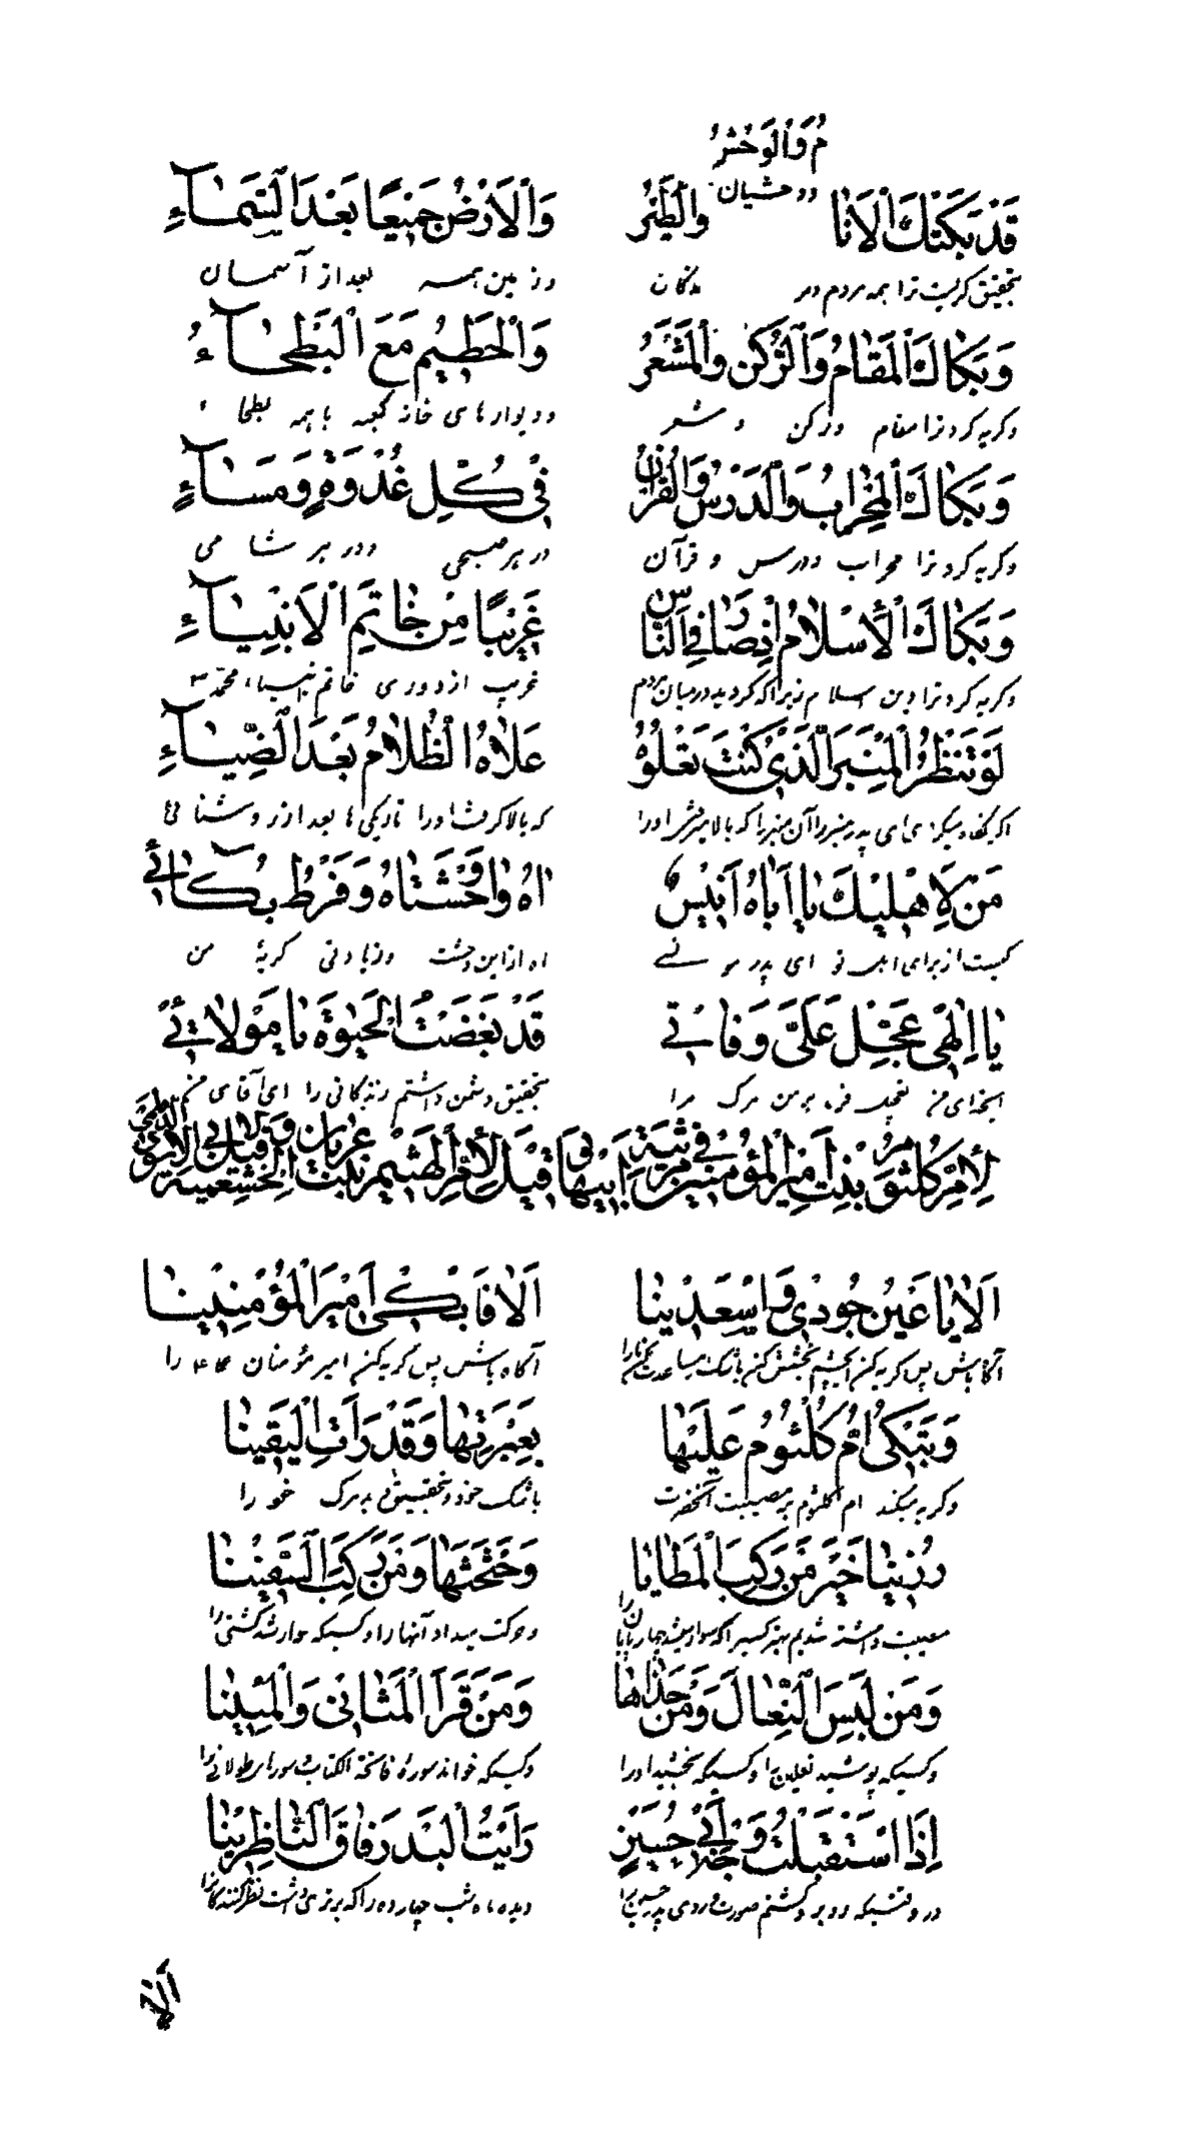 مُ وَالْوَحْشُ
قَدْ بَكَتْكَ الْاَنَا وَالطَّيْرُ وَالْاَرْضُ جَمٖيعًا بَعْدَ السَّمٰاۤءِ
بتحقیق گریست ترا همه مردم و مر ووحشیان وزمین همه بعد از آسمان
وَبَكٰاكَ الْمَقٰامُ وَالرُّكْنُ وَالْمَشْعَرُ وَالْحَطٖيمُ مَعَ الْبَطْحٰاۤءُ
و گریه کرد ترا مقام ورکن و مشعر ودیوارهای خانه کعبه با همه بطحاء
وَبَكٰاكَ الْمِحْرٰابُ وَالدَّرْسُ وَالْقُرْاٰنُ فٖى كُلِّ غُدْوَةٍ وَمَسٰاۤءٍ
و گریه کرد ترا محراب ودرس و قرآن در هر صبحی ودر هر شامی
وَبَكٰاكَ الْاِسْلٰامُ اِذْ صٰارَ فِى النّٰاسِ غَرٖيبًا مِنْ خٰاتِمِ الْاَنْبِيٰاۤءِ
و گریه کرد ترا دین اسلام زیراکه گردید در میان مردم غریب از دوری خاتم انبیاء محمد ص
لَوْ تَنْظُرُ الْمِنْبَرَ الَّذٖى كُنْتَ تَعْلُوهُ عَلٰاهُ الظَّلٰامُ بَعْدَ الضِّيٰاۤءِ
اگر نگاه میکردی ای پدر منبر را آن منبر را که بالا میرفتی اورا که بالا گرفت اورا تاریکی ها بعد از روشنائی
مَنْ لِاَهْلٖيكَ يٰا اَبٰاهُ اَنٖيسٌ اٰهُ وٰاوَحْشَتٰاهُ وَفَرْطُ بُكٰاۤئٖى
کیست از برای اهل تو ای پدر مونسی اه از این وحشت وزیادتی گریۀ من
يٰا اِلٰهٖى عَجِّلْ عَلَىَّ وَفٰاتٖى قَدْ بَغَضْتُ الْحَيٰوةَ يٰا مَوْلٰاۤئٖى
ایخدای من تعجیل فرما بر من مرگ مرا بتحقیق دشمن داشتم زندگانی را ای آقای من
لِاُمِّ كُلْثُومَ بِنْتِ اَمٖيرِ الْمُؤْمِنٖينَ فٖى مَرْثِيَةِ اَبٖيهٰا وَقٖيلَ لِاُمِّ الْهَيْثَمِ بِنْتِ الْخَثْعَمِيَّةِ
اَلٰا يٰا عَيْنُ جُودٖى وَاسْعَدٖينٰا اَلٰا فَابْكٖى اَمٖيرَ الْمُؤْمِنٖينٰا
آگاه باش پس گریه کن ایچشم بخشش کن باشک مساعدت کن مارا آگاه باش پس گریه کن امیر مؤمنان را
وَتَبْكٖى اُمُّ كُلْثُومُ عَلَيْهٰا بِعَبْرَتِهٰا وَقَدْ رَاَتِ الْيَقٖينٰا
و گریه میکند ام کلثوم بر مصیبت آنحضرت باشک خود وبتحقیق دید مرگ خود را
رُزٖينٰا خَيْرَ مَنْ رَكِبَ الْمَطٰايٰا وَحَثْحَثَهٰا وَمَنْ رَكِبَ السَّفٖينٰا
مصیبت داشته شدیم بهتر کسیرا که سوار میشد چهارپایان را وحرکت میداد آنها را وکسیکه سوار شد کشتی را
وَمَنْ لَبِسَ النِّعٰالَ وَمَنْ حَذٰاهٰا وَمَنْ قَرَاَ الْمَثٰانٖى وَالْمَئٖينٰا
وکسیکه پوشید نعلین را وکسیکه بخشید اورا وکسیکه خواند سورۀ فاتحة الکتاب وسورهای طولانی را
اِذَا اسْتَقْبَلْتُ وَجْهَ اَبٖى حُسَيْنٍ رَاَيْتُ الْبَدْرَ فٰاقَ النّٰاظِرٖينٰا
در وقتیکه روبرو گشتم صورت وروی پدر حسین را دیدم ماه شب چهارده را که برتری داشت نظر کنندگان را
اَلٰا